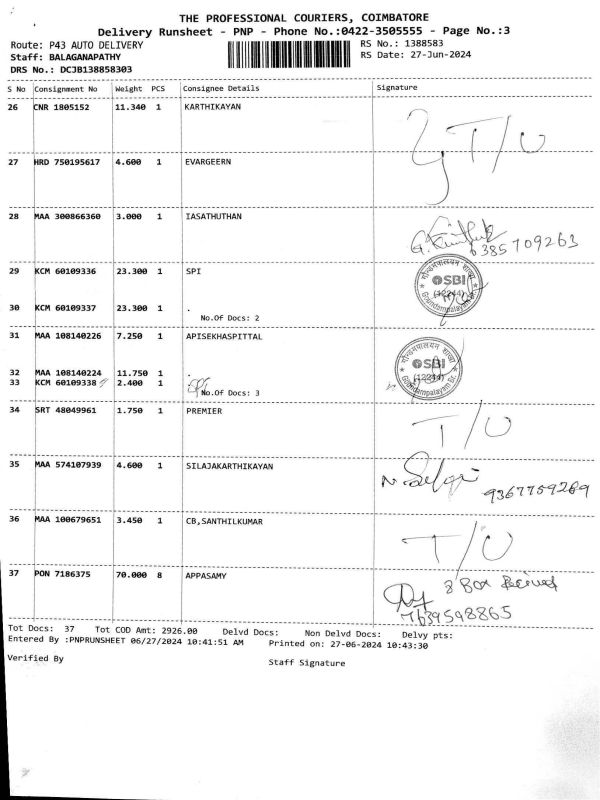 THE PROFESSIONAL COURIERS, COIMBATORE
Delivery Runsheet - PNP - Phone No.:0422-3505555 - Page No.:3
Route: P43 AUTO DELIVERY RS No.: 1388583
Staff: BALAGANAPATHY RS Date: 27-Jun-2024
DRS No.: DCJB138858303
S No Consignment No Weight PCS Consignee Details Signature
26 CNR 1805152 11.340 1 KARTHIKAYAN
T/O
27 HRD 750195617 4.600 1 EVARGEERN
28 MAA 300866360 3.000 1 IASATHUTHAN
6385709263
29 KCM 60109336 23.300 1 SPI
SBI
30 KCM 60109337 23.300 1 .
No.Of Docs: 2
31 MAA 108140226 7.250 1 APISEKHASPITTAL
SBI
32 MAA 108140224 11.750 1 .
33 KCM 60109338 2.400 1 SPI
No.Of Docs: 3
34 SRT 48049961 1.750 1 PREMIER
T/O
35 MAA 574107939 4.600 1 SILAJAKARTHIKAYAN
9367759269
36 MAA 100679651 3.450 1 CB,SANTHILKUMAR
T/O
37 PON 7186375 70.000 8 APPASAMY
8 Box Received
7639598865
Tot Docs: 37 Tot COD Amt: 2926.00 Delvd Docs: Non Delvd Docs: Delvy pts:
Entered By :PNPRUNSHEET 06/27/2024 10:41:51 AM Printed on: 27-06-2024 10:43:30
Verified By Staff Signature